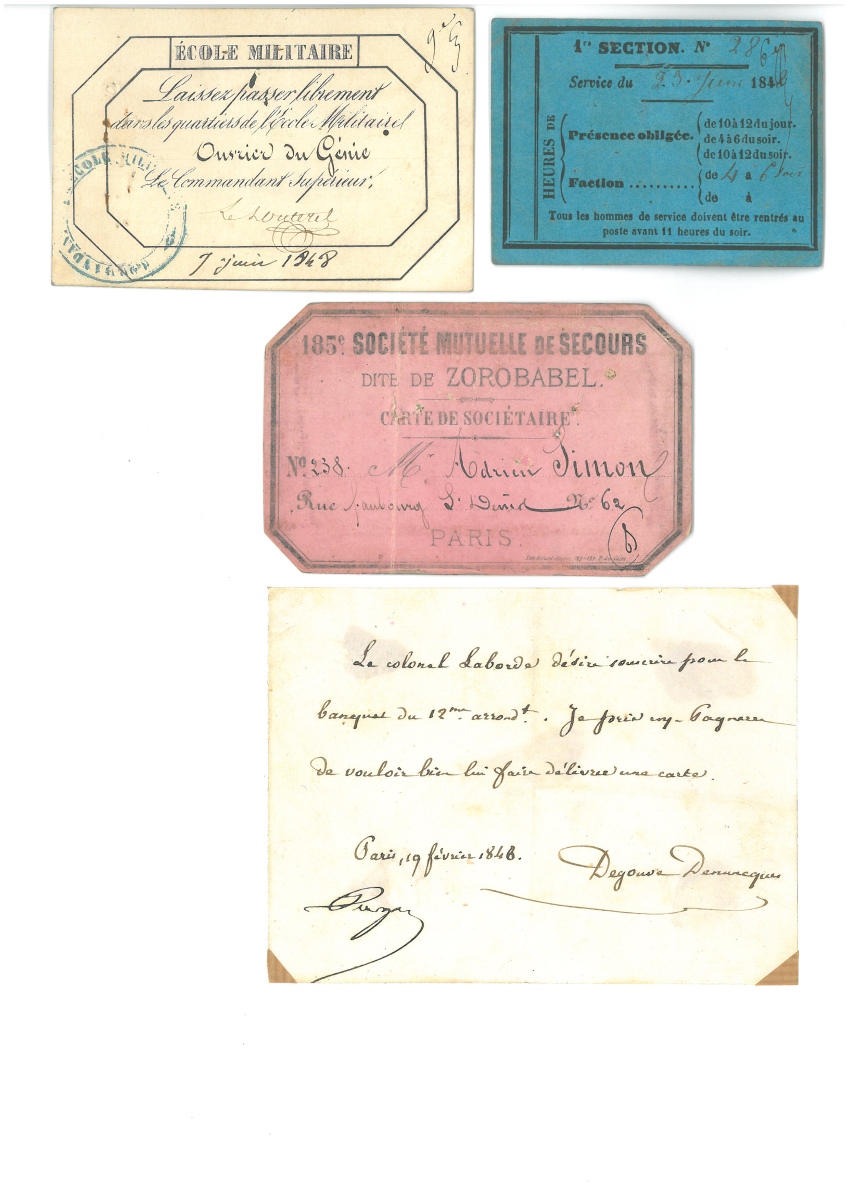 ÉCOLE MILITAIRE
Laissez passer librement
dans les quartiers de l'École Militaire
Ouvrier du Génie
Le Commandant Supérieur,
7 juin 1848
ÉCOLE MILI
1re SECTION. No 286
Service du 23 juin 1848
HEURES DE
Présence obligée.
de 10 à 12 du jour.
de 4 à 6 du soir.
de 10 à 12 du soir.
Faction ..........
de 4 à 6 soir
de à
Tous les hommes de service doivent être rentrés au
poste avant 11 heures du soir.
185e SOCIÉTÉ MUTUELLE DE SECOURS
DITE DE ZOROBABEL.
CARTE DE SOCIÉTAIRE.
No 238. Mr Adrien Simon
Rue faubourg St Denis No 62
PARIS.
Le colonel Laborde désire souscrire pour le
banquet du 12me arrondt. Je prie mr Pagnerre
de vouloir bien lui faire délivrer une carte.
Paris, 19 février 1848.
Degouve Denuncques